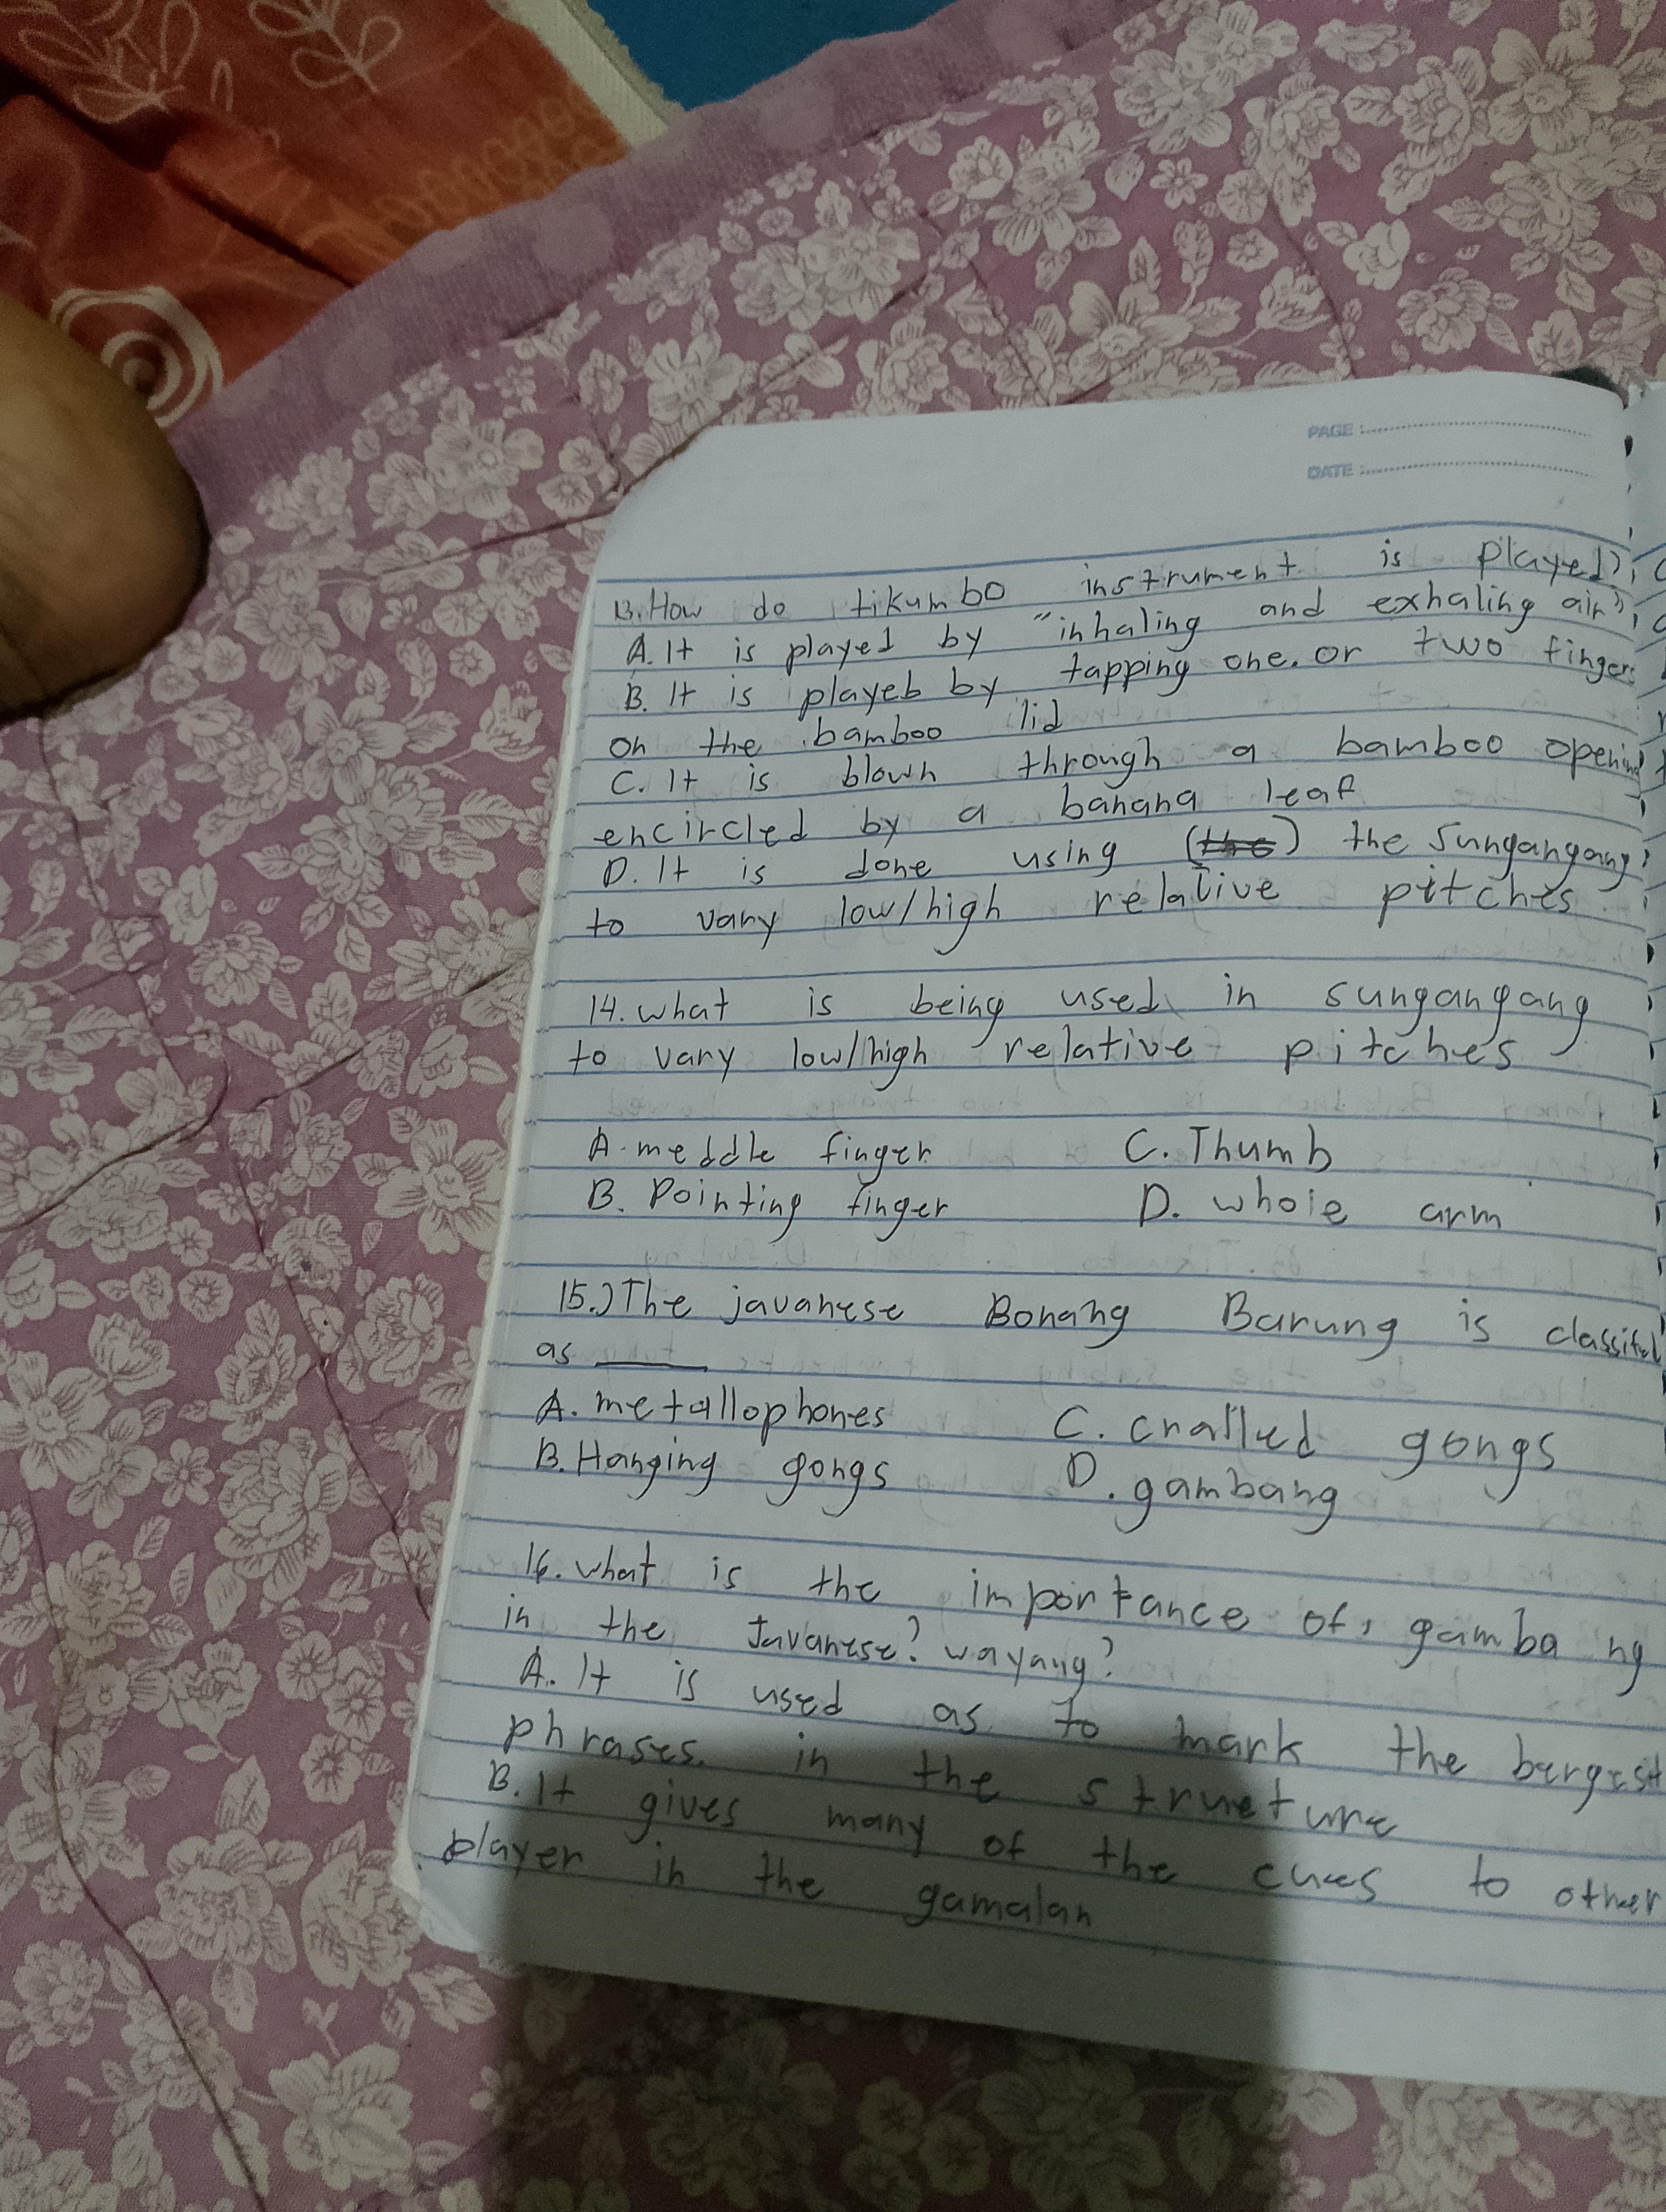 PAGE :
DATE :
13. How do tikumbo instrument is played?
A. It is played by "inhaling and exhaling air"
B. It is playeb by tapping one. or two fingers
on the bamboo lid
C. It is blown through a bamboo opening
encircled by a banana leaf
D. It is done using (the) the Sungangang
to vary low/high relative pitches
14. what is being used in sungangang
to vary low/high relative pitches
A. meddle finger C. Thumb
B. Pointing finger D. whole arm
15.) The javanese Bonang Barung is classified
as ______
A. metallophones C. gongs
B. Hanging gongs D. gambang
16. what is the importance of, gambang
in the Javanese? wayang?
A. It is used as to mark the bargest
phrases. in the structure
B. It gives many of the cues to other
player in the gamalan